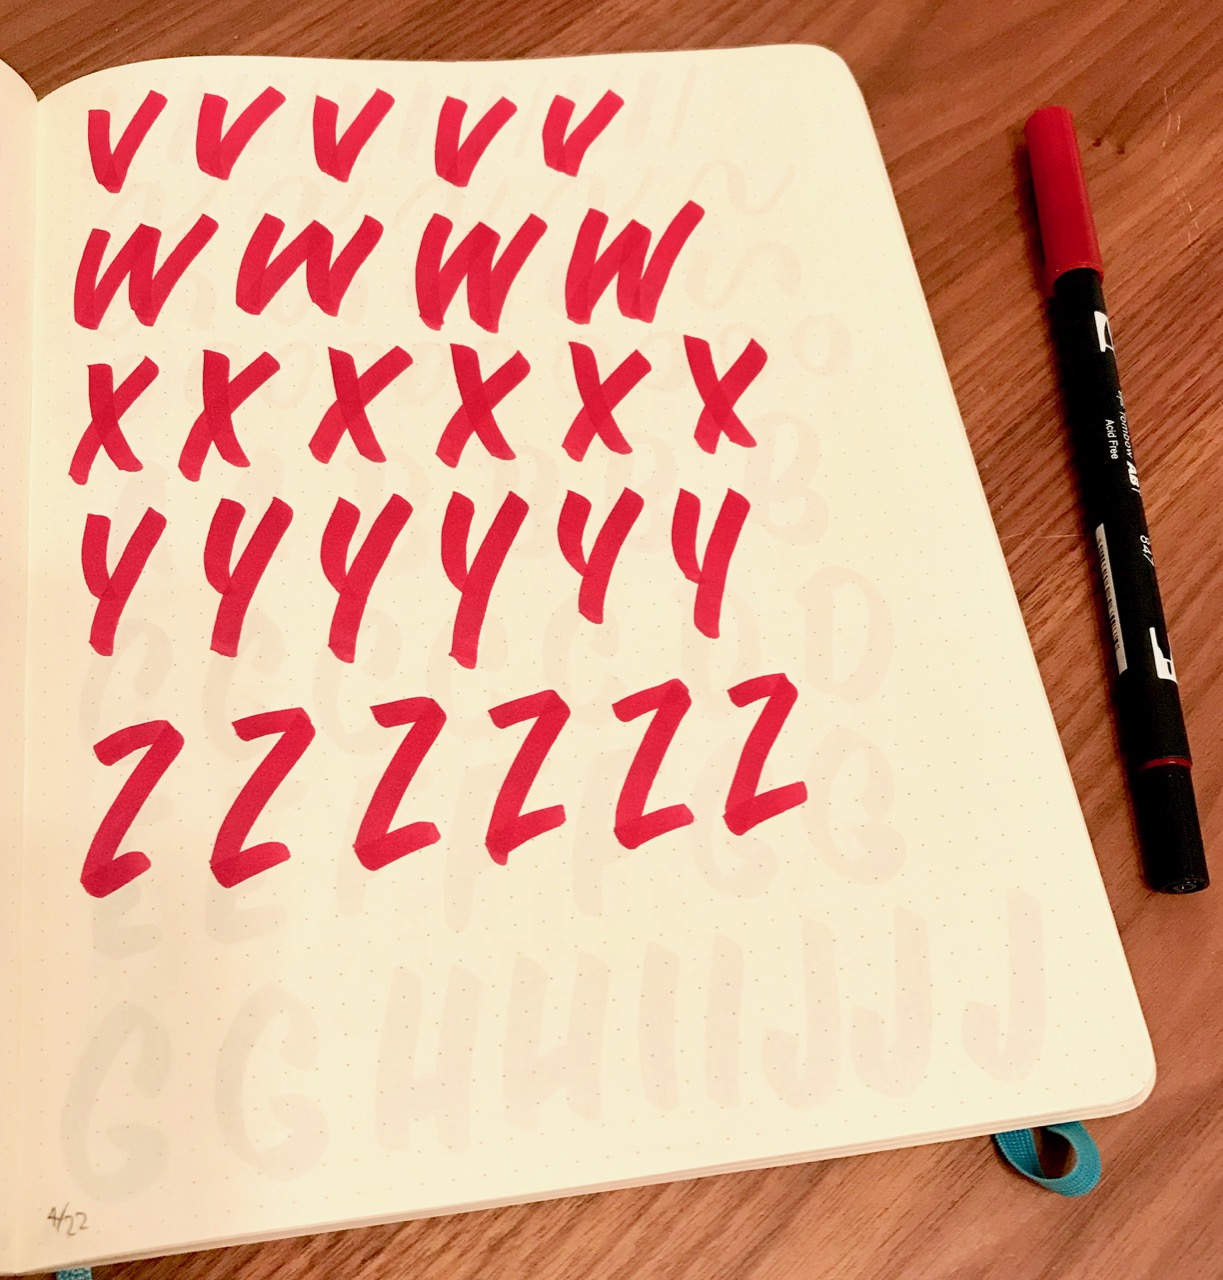 V V V V V
W W W W
X X X X X X
Y Y Y Y Y Y
Z Z Z Z Z Z
4/22
Tombow AB
Acid Free
847